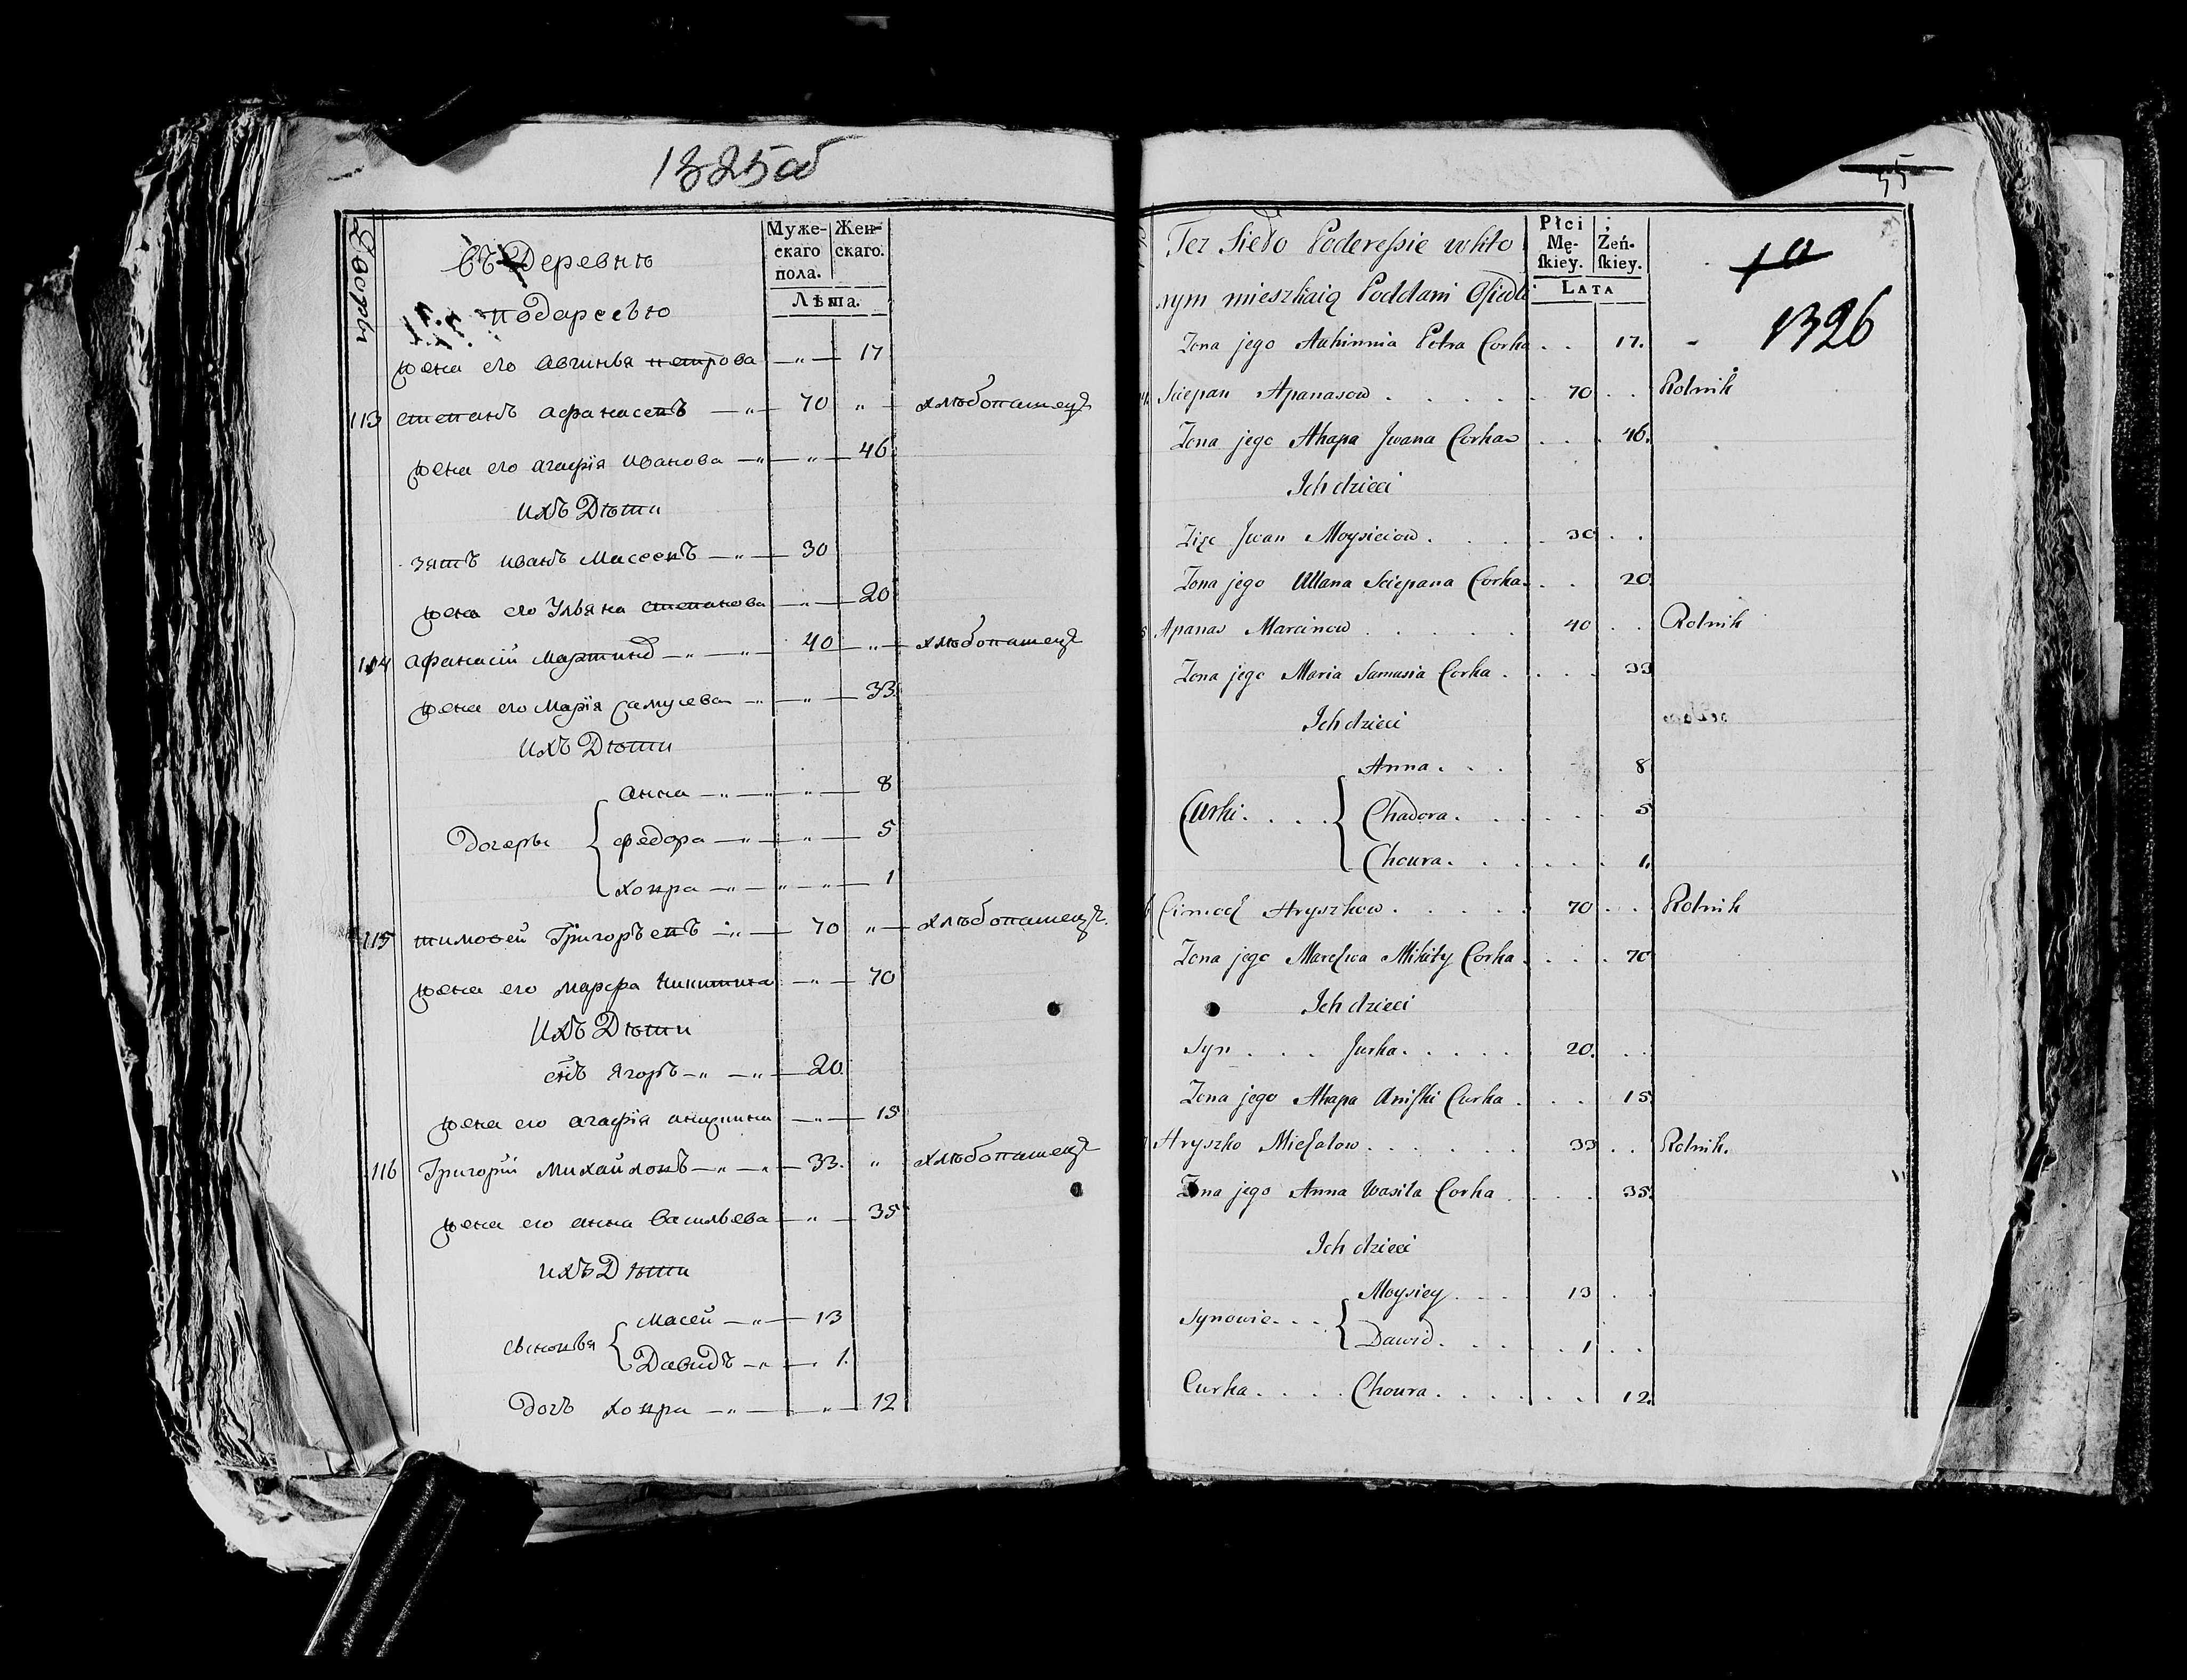 1325об
Дворы
въ Деревню
подаресью
Муже-
скаго
пола.
Жен-
скаго.
Лѣта.
жена его авгинья петрова —"— 17
113 степанъ афанасевъ —"— 70 " — хлѣбопашецъ
жена его агафія иванова —"—"— 46
ихъ Дѣти
зятъ иванъ масеевъ —"— 30
жена его Ульяна степанова —"— 20
114 афанасій мартинов —"—"— 40 —"— хлѣбопашецъ
жена его марія самусева —"—"— 33.
ихъ Дѣти
анна —"—"—"— 8
Дочеры { федора —"—"— 5
ховра —"—"—"— 1
115 тимофей Григорьевъ —"— 70 " — хлѣбопашецъ.
жена его марфа никитина —"— 70
ихъ Дѣти
снъ ягоръ —"—"— 20.
жена его агафія —"— 15
116 Григорій михайловъ —"—"— 33. " хлѣбопашецъ
жена его анна васильева —"— 35
ихъ Дѣти
масей —"— 13
сыновья { Давидъ —"— 1.
дочъ ховра —"—"— 12
55
Tez Sieło Poderessie wkto
rym mieszkaią Poddani Osiedli
Płci
Mę-
skiey.
Żeń-
skiey.
LATA
1326
Zona jego Auhinnia Petra Corka . . 17.
Sciepan Apanasow . . . . . 70 . . Rolnik
Zona jego Ahapa Jwana Corka . . . 46.
Ich dzieci
Zięc Jwan Moysieiow . . . . 30 . .
Zona jego Ullana Sciepana Corka . . . 20.
Apanas Marcinow . . . . . 40 . . Rolnik
Zona jego Maria Samusia Corka . . . . 33
Ich dzieci
Anna . . . 8
Curki . . . . { Chadora . . . . . . 5
Choura . . . . . . 1.
Cimoch Hryszkow . . . . . 70 . . Rolnik
Zona jego Marchwa Mikity Corka . . . . 70
Ich dzieci
Syn . . . Jurka . . . . . 20. . .
Zona jego Ahapa Aniski Curka . . . 15
Hryszko Michałow . . . . . . 33 . . Rolnik.
Zona jego Anna Wasila Corka . . . . 35.
Ich dzieci
Moysiey . . . . 13 .
Synowie . . . { Dawid . . . . . 1 . .
Curka . . . . Choura . . . . . . 12.